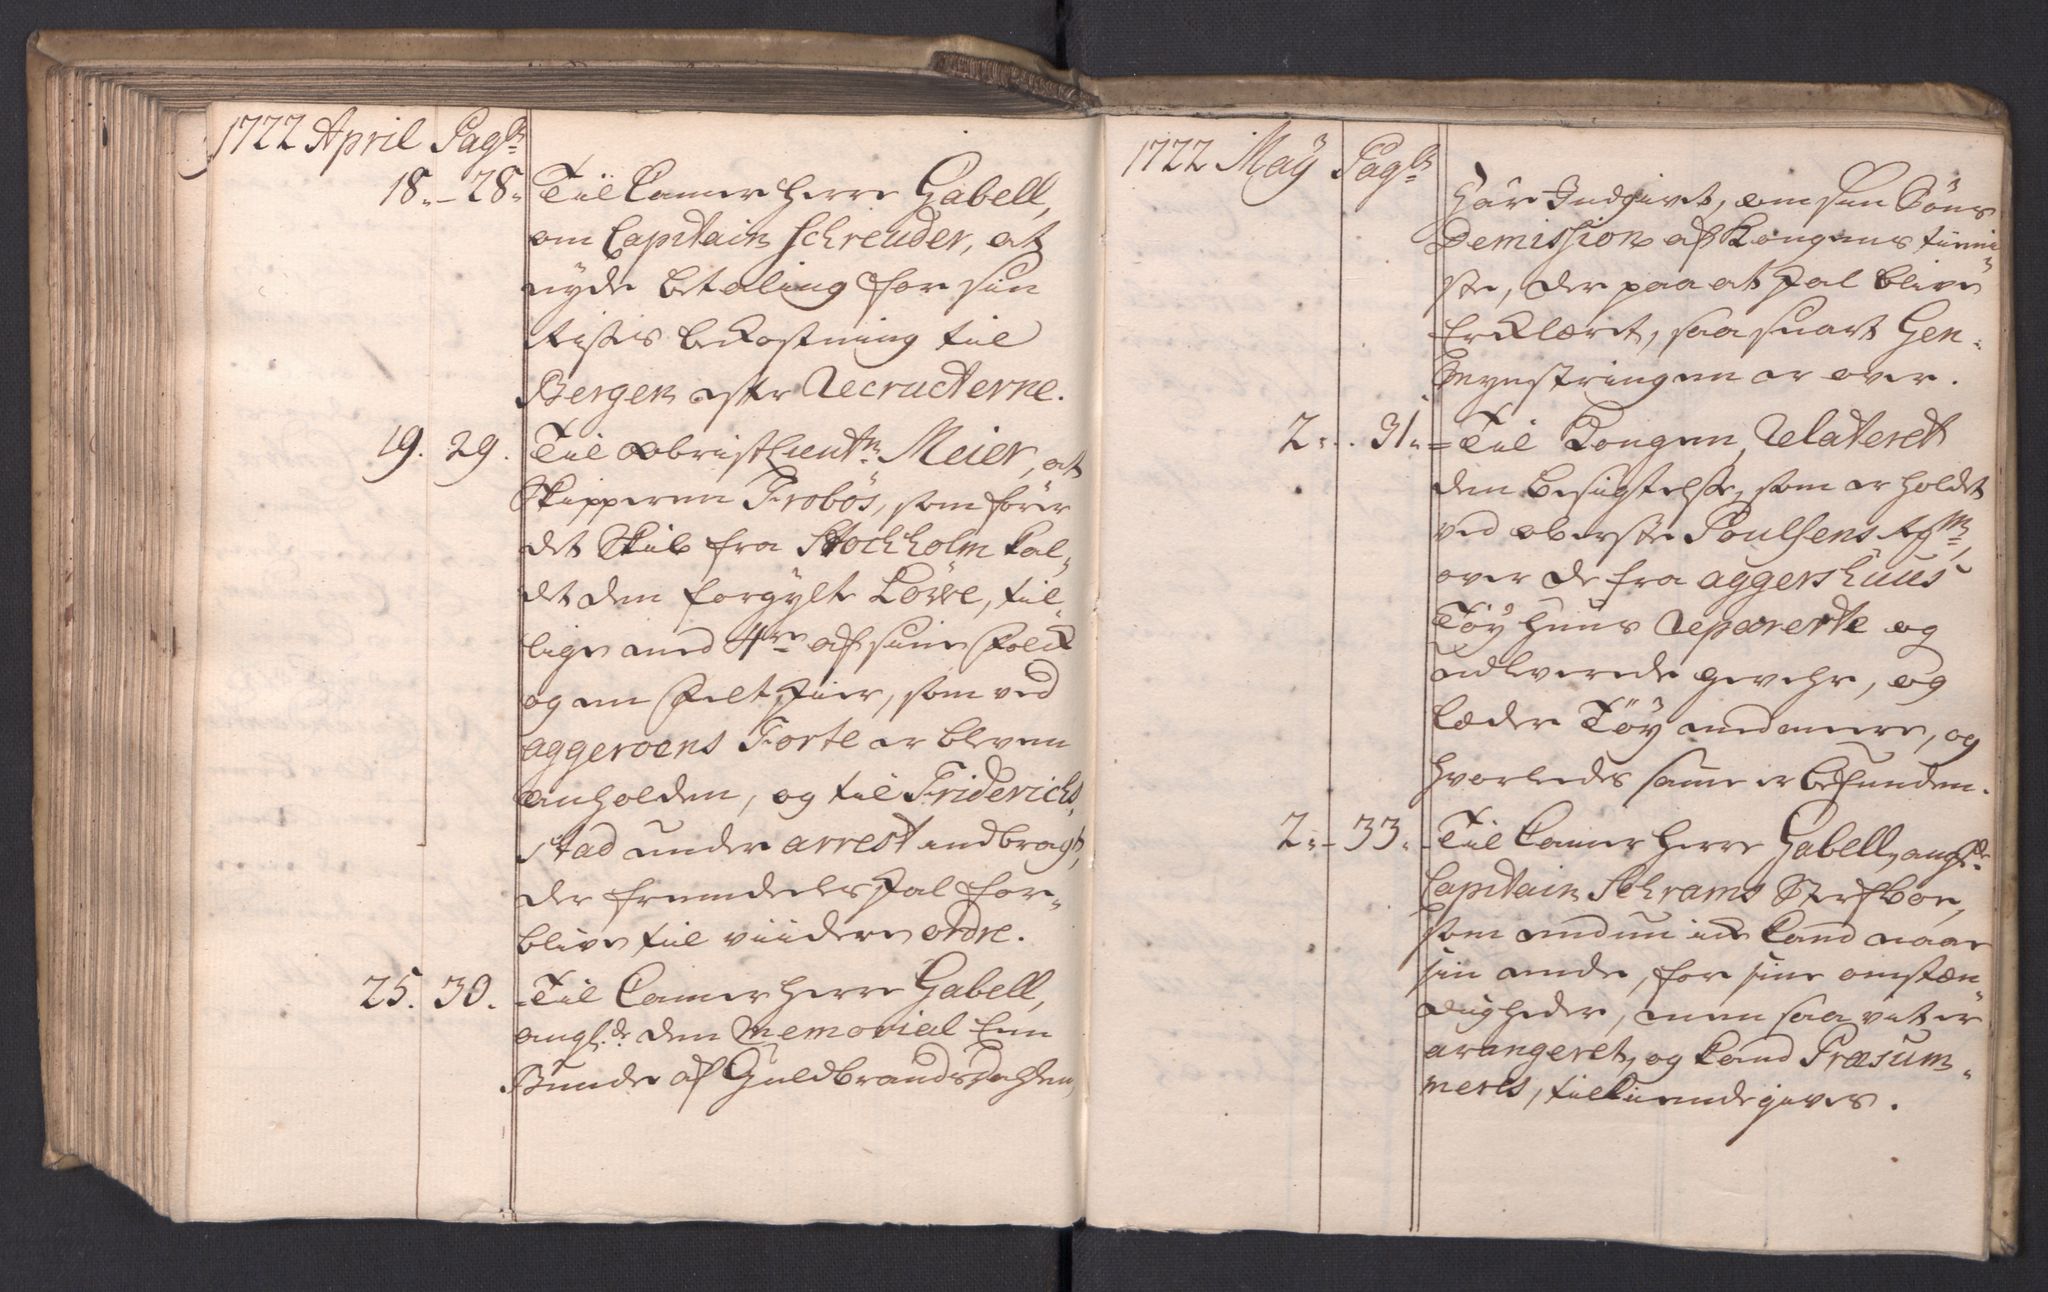 1722 April Pag:
18. - 28. Til Camer Herre Gabell,
om Capitain Schreuder, at
nyde betaling for sin
Reises bekostning til
Bergen efter Recructerne.
19. 29. Til Obristlieut: Meier, at
Skipperen Frobös, som fører
det Skib fra Stockholm kal-
det den forgylte Löwe, til-
lige med 4re af sine Folk
og en Feltskier, som ved
aggeroens Forte er bleven
anholden, og til Friderichs-
stad under arrest indbragt,
der fremdeles skal for-
blive til viidere ordre.
25. 30. Til Camer Herre Gabell,
angl:de den Memorial Een
Bunde af Guldbrandsdahlen,
1722 Maÿ Pag:
har Indgivet, om sin Söns
Demission af Kongens tienni-
ste, der paa at skal blive
Erklæret, saa snart Gen-
Mynstringen er over.
2. - 31. Til Kongen, Relateret
den besigtelse, som er holdet
ved oberste Poulsens Rgm:,
over de fra aggershuus
Töÿhuus Reparerte og
udleverede gevehr, og
læder Töÿ med mere, og
hvorledes samme er befunden.
2. - 33. Til Camer Herre Gabell, angl:de
Capitain Schrams Sterfboe,
som endnu icke kand naae
sin ende, for sine omstæn-
digheder, men saa vit er
arangeret, og kand Præsum-
meres, tilkiendegives.